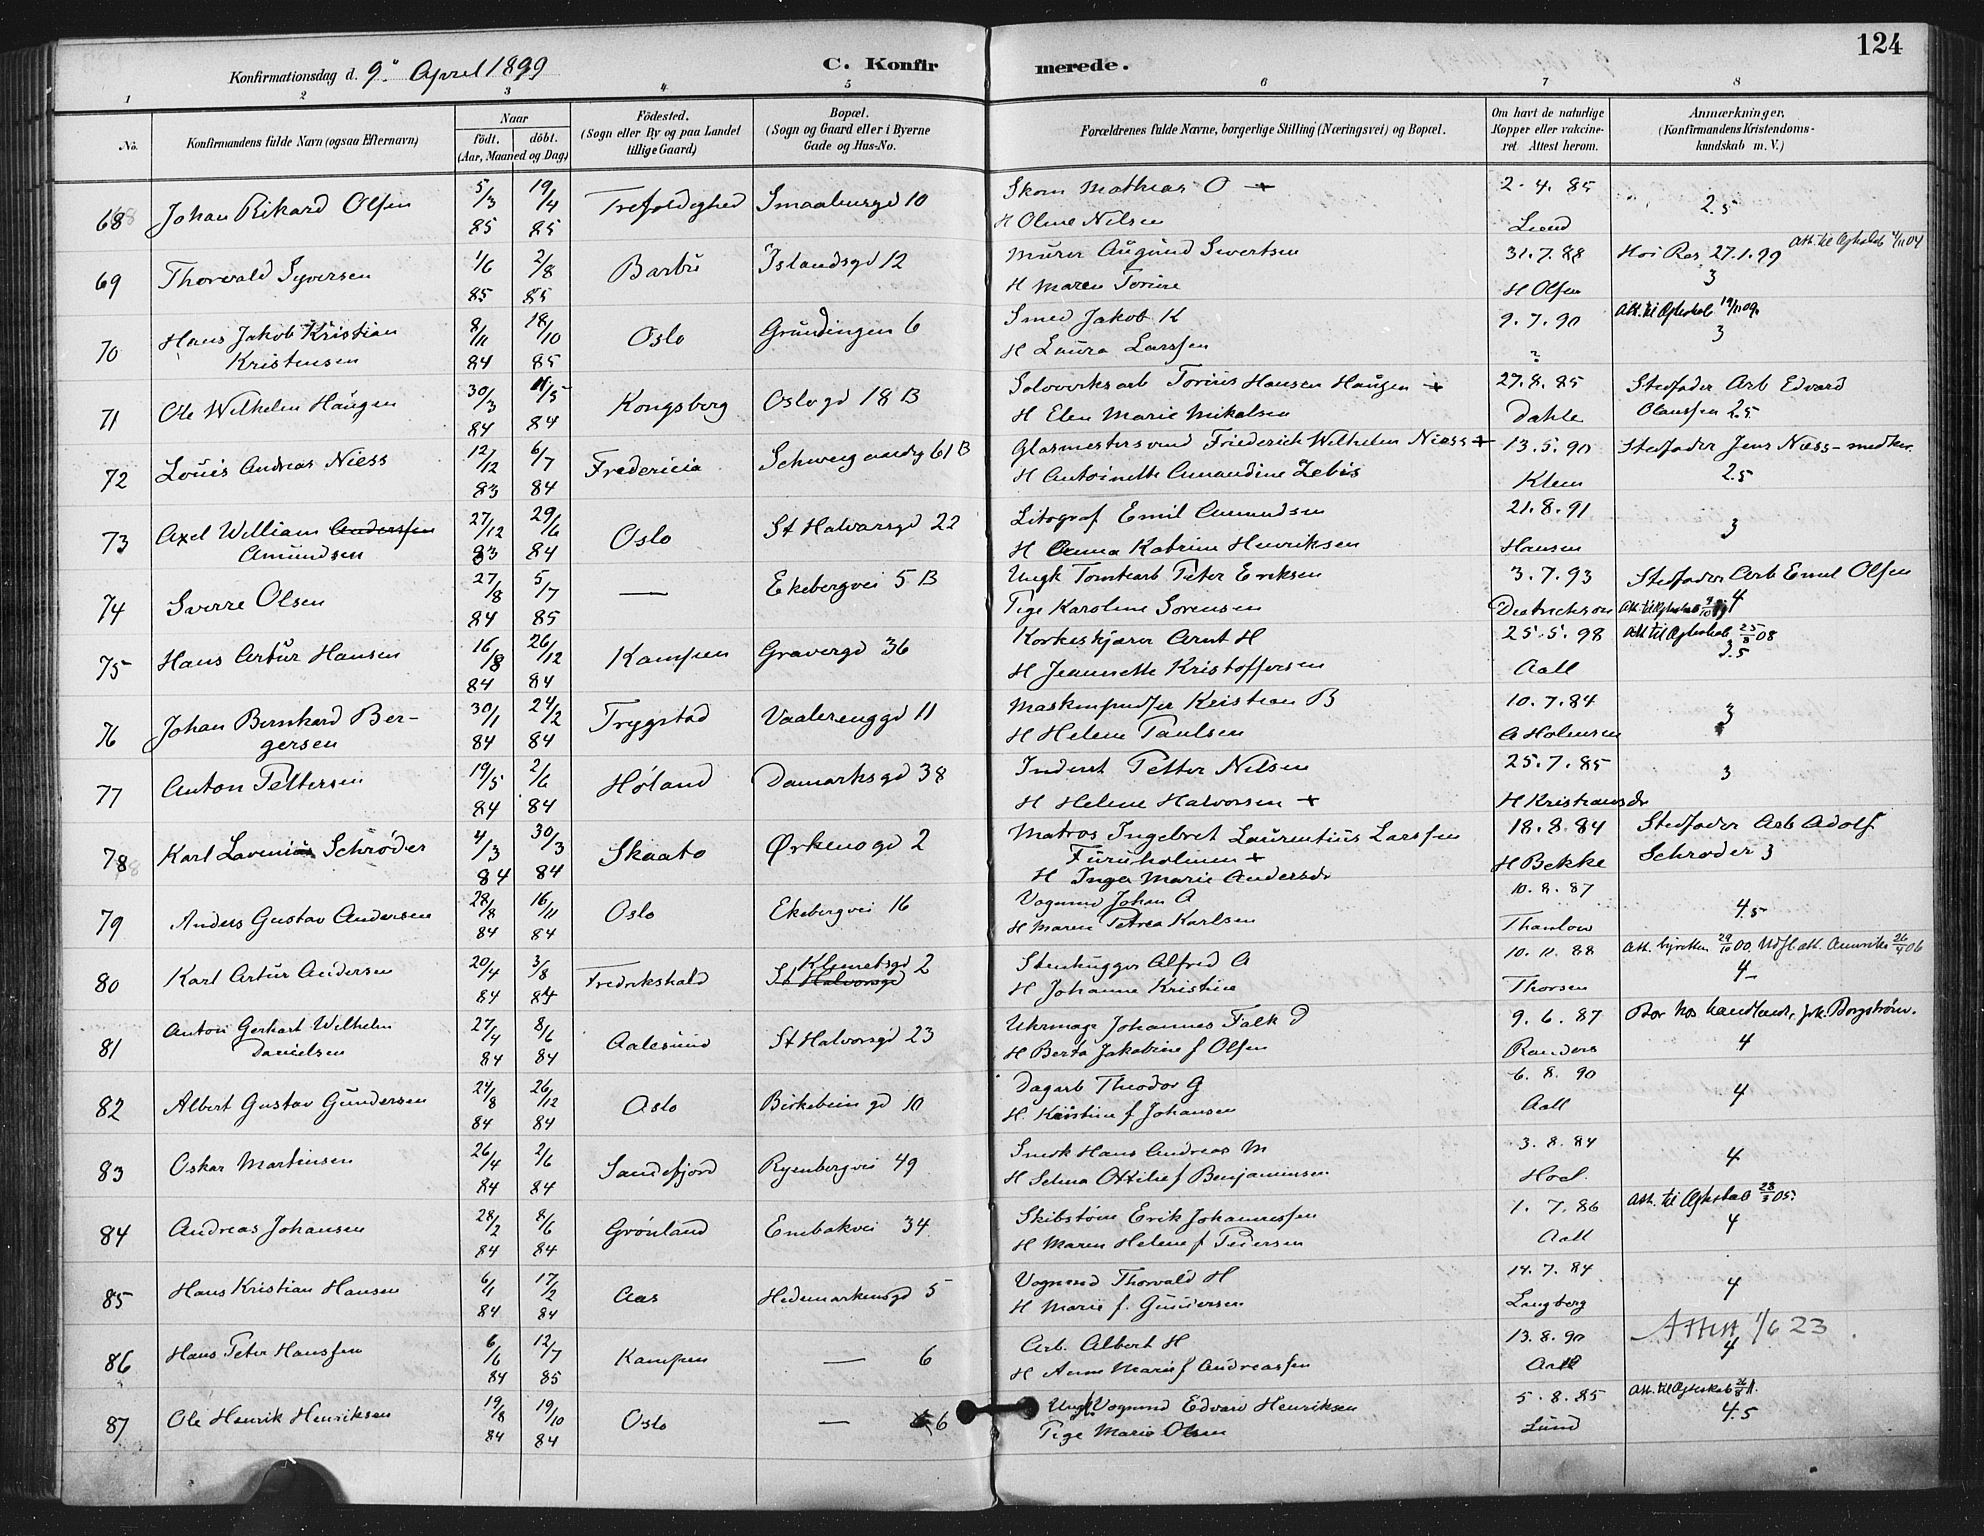 124
Konfirmationsdag d. 9de April 1899
C. Konfirmerede.
1 2 3 4 5 6 7 8
No. Konfirmandens fulde Navn (ogsaa Efternavn) Naar født. døbt. (Aar, Maaned og Dag) Fødested. (Sogn eller By og paa Landet tillige Gaard) Bopæl. (Sogn og Gaard eller i Byerne Gade og Hus-No. Forældrenes fulde Navne, borgerlige Stilling (Næringsvei) og Bopæl. Om havt de naturlige Kopper eller vaccineret. Attest herom. Anmærkninger. (Konfirmandens Kristendomskundskab m. V.)
68 Johan Rikard Olsen 5/3 85 19/4 85 Trefoldighed Smaalensgd 10 Skom Mathias O +
H Oline Nilsen 2.4.85 Lund 2.5
69 Thorvald Syversen 1/6 85 2/8 85 Barbu Islandsgd 12 Murer Augund Sivertsen
H Maren Torine 31.7.88 H Olsen 27.1.99 Att. til Ægteskab 4/11 04 3
70 Hans Jakob Kristian Kristensen 8/11 84 18/10 85 Oslo Grundingen 6 Smed Jakob K
H Laura Larssen 9.7.90 ? Att. til Ægteskab 19/11 09. 3
71 Ole Wilhelm Haugen 30/3 84 11/5 84 Kongsberg Oslogd 18 B Solvverksarb Torius Hansen Haugen +
H Elen Marie Mikalsen 27.8.85 Dahle Stedfader Arb Edvard Olaussen 2.5
72 Louis Andreas Niess 12/12 83 6/7 84 Fredericia Schweigaardsg 61 B Glasmestersvend Friederich Wilhelm Niess +
H Antoinette Amandine Zebis 13.5.90 Klem Stedfader Jens Niess - 2.5
73 Axel William Anderssen Amundsen 27/12 83 29/6 84 Oslo St Halvarsgd 22 Litograf Emil Amundsen
H Anna Katrine Henriksen 21.8.91 Hansen 3
74 Sverre Olsen 27/8 84 5/7 85 — Ekebergvei 5 B Ungk Tomtearb Peter Eriksen
Pige Karoline Sørensen 3.7.93 Diedrichson Stedfader Arb Emil Olsen Att. til Ægteskab 4
75 Hans Artur Hansen 16/8 84 26/12 84 Kampen Gravergd 36 Korkeskjærer Arnt H
H Jeannette Kristoffersen 25.5.98 Aall Att til Ægteskab 25/8 08 3.5
76 Johan Bernhard Bergersen 30/1 84 24/2 84 Trygstad Vaalerenggd 11 Kristian B
H Helene Paulsen 10.7.84 A Holmsen 3
77 Anton Pettersen 19/5 84 2/6 84 Høland Damarksgd 38 Inderst Petter Nilsen
H Helene Halvorsen + 25.7.85 H Kristiansdr 3
78 Karl Lavenius Schrøder 4/3 84 30/3 84 Skaato Ørkenogd 2 Matros Ingebret Laurentius Larssen Furuholmen +
H Inger Marie Andersdr 18.8.84 H Bekke Stedfader Arb Adolf Schrøder 3
79 Anders Gustav Andersen 28/8 84 16/11 84 Oslo Ekebergvei 16 Vognmd Johan A
H Maren Petrea Karlsen 10.8.87 Thaulow 4.5
80 Karl Artur Andersen 20/4 84 3/8 84 Fredrikshald Klemetsgd 2 St Halvorsgd Stenhugger Alfred A
H Johanne Kristine 10.11.88 Thorsen Att. byretten 29/10 00 Udfl. att. Amerika 26/4 06 4
81 Anton Gerhart Wilhelm Danielsen 27/4 84 8/6 84 Aalesund St Halvorsgd 23 Uhrmager Johannes Falk D
H Berta Jakobine f Olsen 9.6.87 Randers Bor hos Joh. Borgstrøm. 4
82 Albert Gustav Gundersen 24/8 84 26/12 84 Oslo Birkebeingd 10 Dagarb Theodor G
H. Kristine f Johansen 6.8.90 Aall 4
83 Oskar Martinsen 26/4 84 2/6 84 Sandefjord Ryenbergvei 49 Smedk Hans Andreas M
H Selma Ottilie f Benjaminsen 3.8.84 Hoel. 4
84 Andreas Johansen 28/2 84 8/6 84 Grønland Enebakvei 34 Skibstøm Erik Johannessen
H Maren Helene f Pedersen 1.7.86 Aall Att. til Ægteskab 28/3 05. 4
85 Hans Kristian Hansen 6/1 84 17/2 84 Aas Hedemarkensgd 5 Vognmd Thorvald H
H Marie f. Gundersen 14.7.84 Langberg 4
86 Hans Peter Hanssen 6/6 84 12/7 85 Kampen — 6 Arb. Albert H
H Anne Marie f Andreassen 13.8.90 Aall Attest 1/6 23 4
87 Ole Henrik Henriksen 19/8 84 19/10 84 Oslo — 6 Ungk Vognmd Edvard Henriksen
Pige Marie Olsen 5.8.85 Lund Att. til Ægteskab 4.5